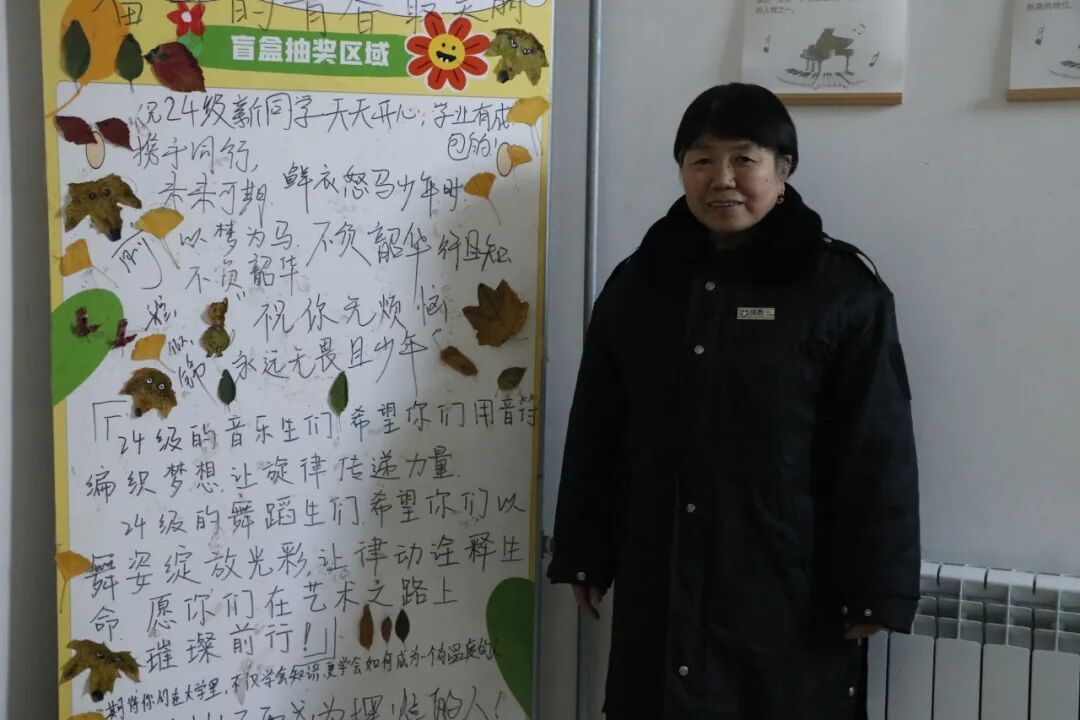 的青春最美丽
盲盒抽奖区域
祝24级新同学天天开心,学业有成
包的!
携手同行,
未来可期
鲜衣怒马少年时
以梦为马.不负韶华
不负韶华
祝你无烦恼
永远无畏且少年
「24级的音乐生们希望你们用音符
编织梦想.让旋律传递力量.
24级的舞蹈生们.希望你们以
舞姿绽放光彩,让律动诠释生
命.愿你们在艺术之路上
璀璨前行!」
期待你们在大学里,不仅学会知识,更学会如何成为一个有温度的人
的人!